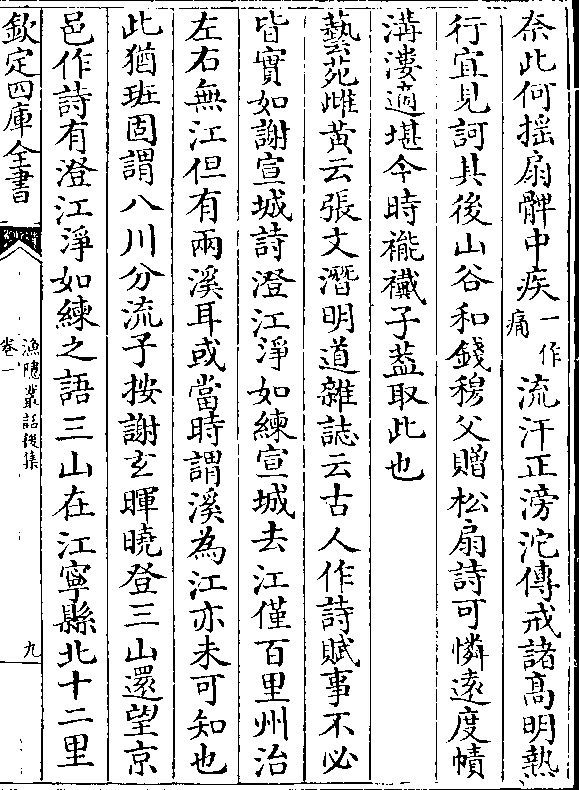 奈此何揺扇髀中疾一作痛流汗正滂沱傳戒諸髙明熱
行宜見訶其後山谷和錢穆父贈松扇詩可憐逺度幘
溝漊適堪今時褦襶子葢取此也
藝苑雌黃云張文潛明道雜誌云古人作詩賦事不必
皆實如謝宣城詩澄江淨如練宣城去江僅百里州治
左右無江但有兩溪耳或當時謂溪為江亦未可知也
此猶班固謂八川分流予按謝玄暉曉登三山還望京
邑作詩有澄江淨如練之語三山在江寧縣北十二里
欽定四庫全書
漁隱叢話後集
卷一
九